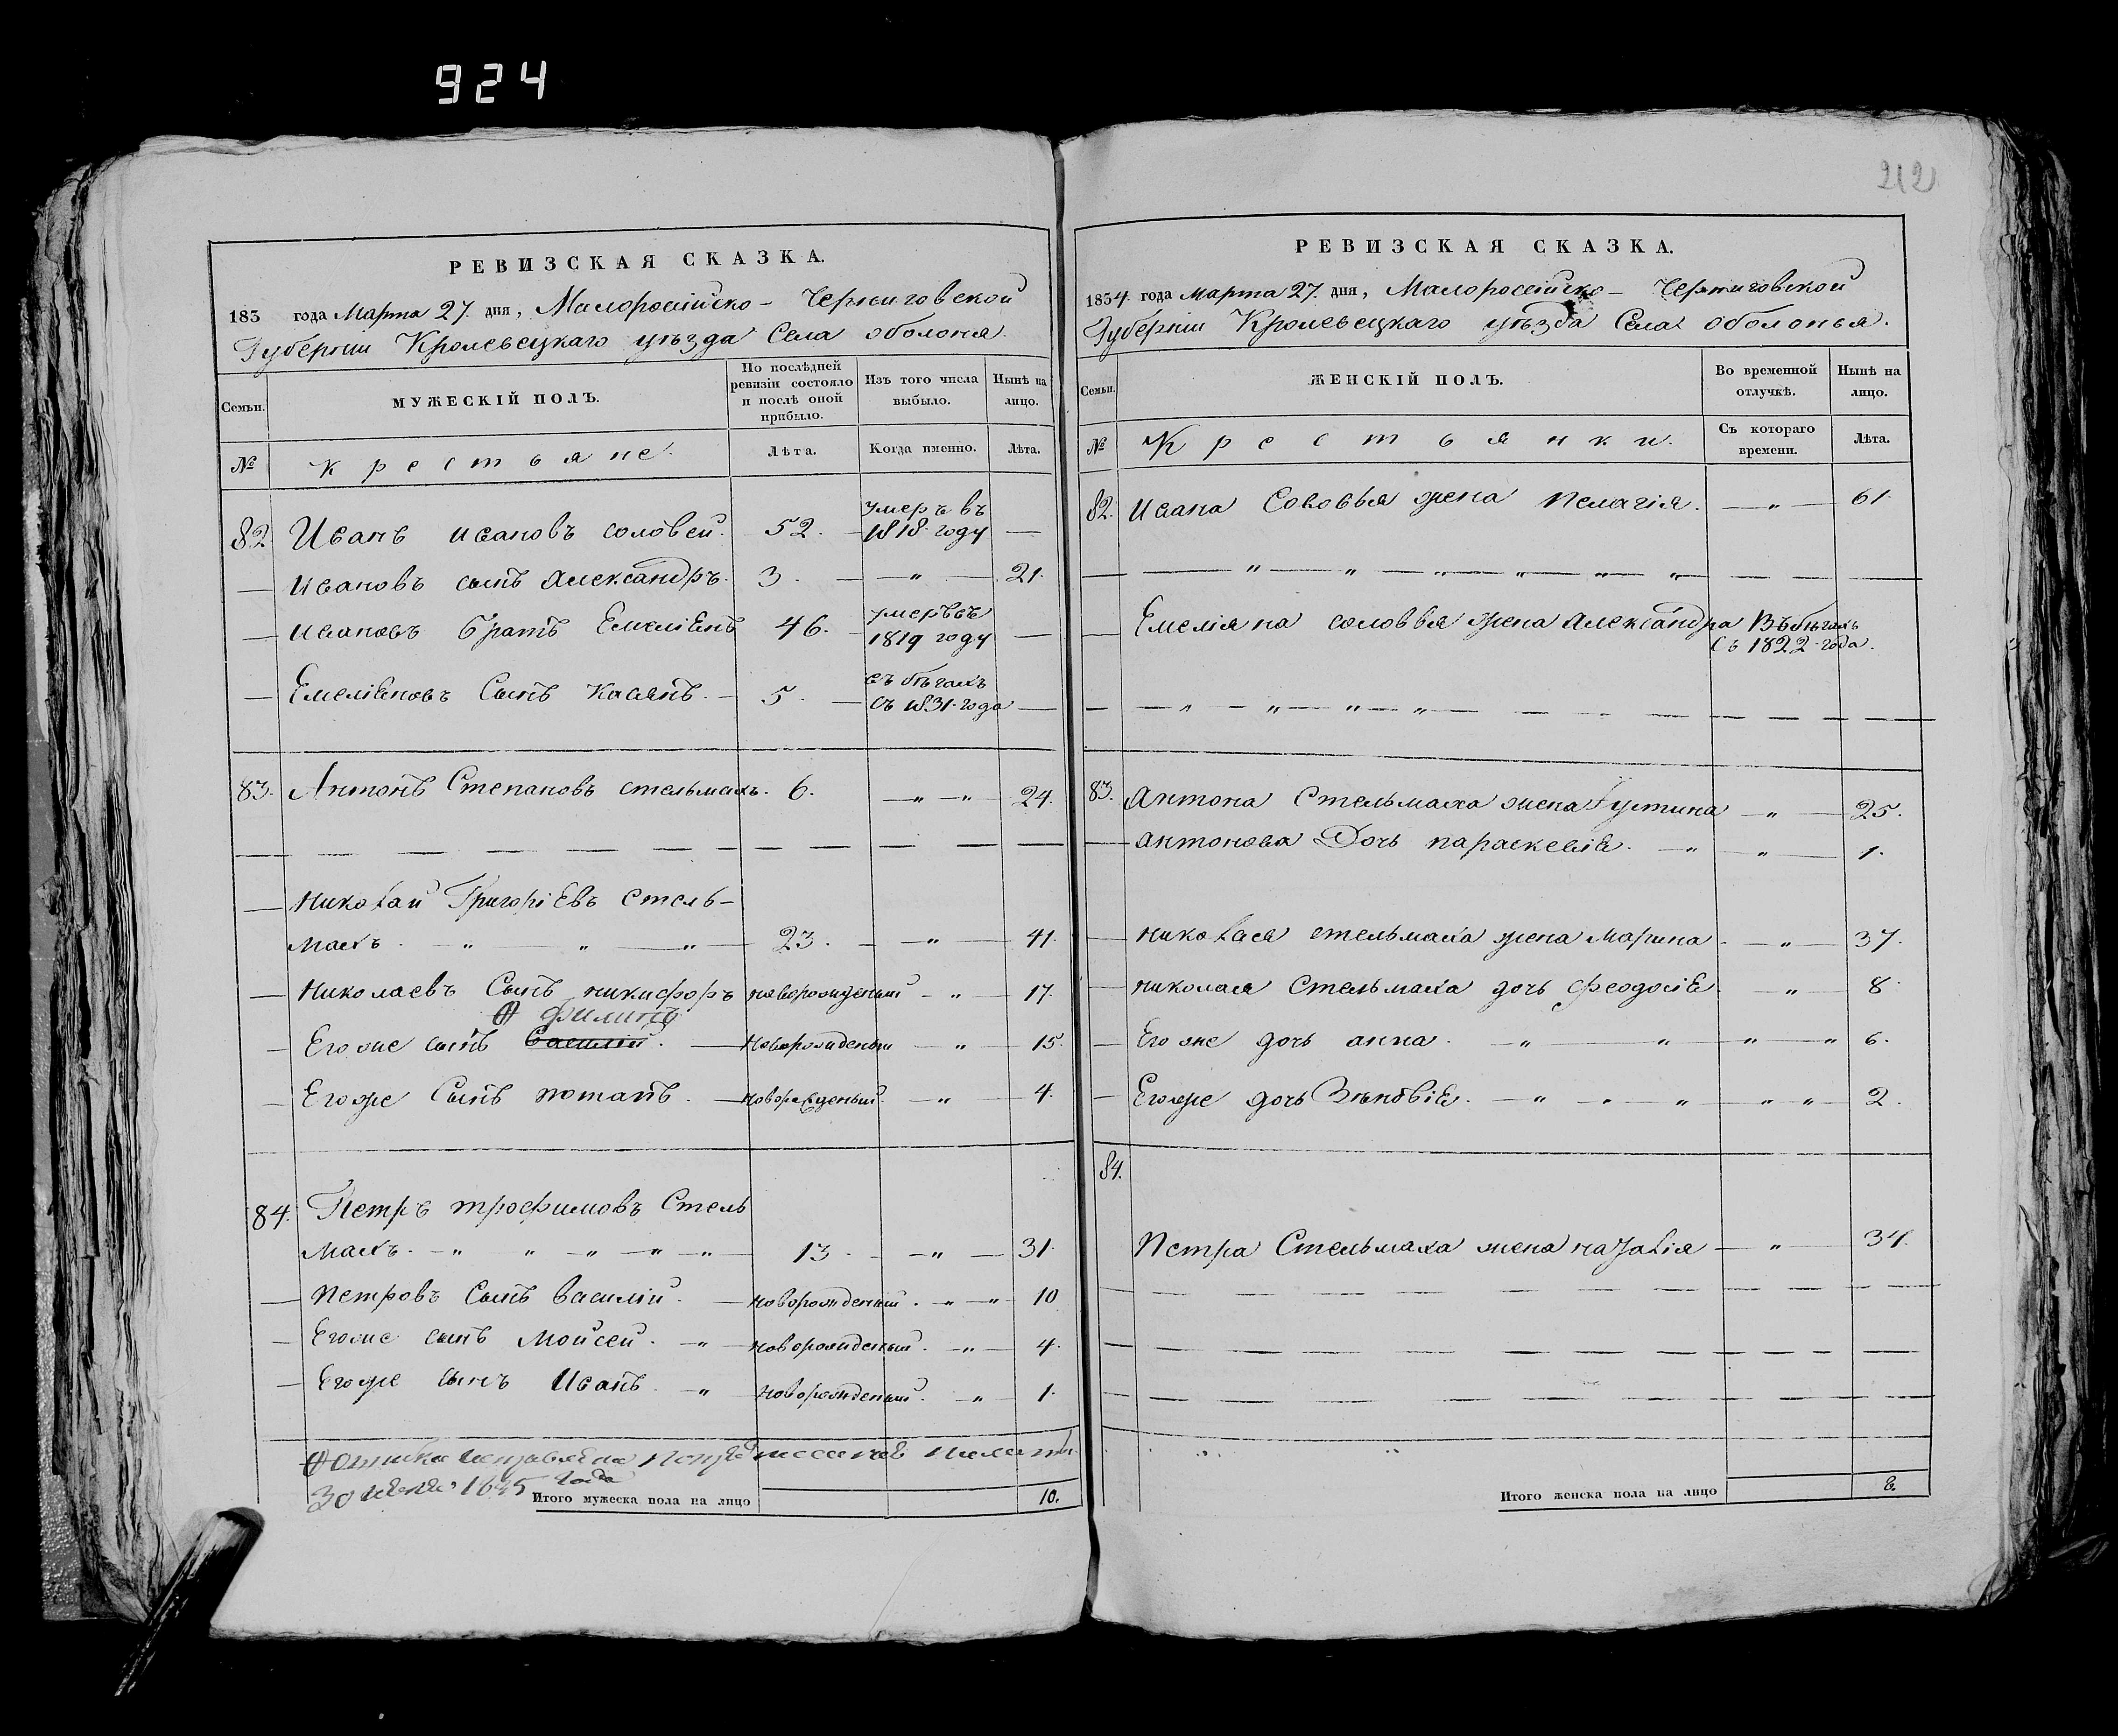 924
212
РЕВИЗСКАЯ СКАЗКА.
183 года Марта 27. дня, Малороссійско- Черниговской
Губерніи Кролевецкаго уѣзда Села оболонья.
Семьи. МУЖЕСКІЙ ПОЛЪ. По послѣдней ревизіи состояло и послѣ оной прибыло. Изъ того числа выбыло. Нынѣ на лицо.
№ Крестьяне. Лѣта. Когда именно. Лѣта.
82 Иванъ ивановъ соловей. 52. умеръ въ 1818 году —
— ивановъ сынъ александръ. 3. — „ — 21.
— ивановъ братъ Емеліенъ 46. умеръ въ 1819 году —
— Емеліеновъ Сынъ касіянъ. 5. въ бѣгахъ съ 1831 года —
83. Антонъ Степановъ стельмахъ. 6. — „ „ 24.
— николай Григоріевъ стель-
махъ. „ „ „ 23. — „ — 41.
— николаевъ Сынъ никифоръ новорожденый — „ 17.
Филипъ
— Егоже сынъ Василій. — новорожденый — „ — 15.
— Егоже Сынъ потапъ. — новорожденый. — „ — 4.
84. Петръ трофимовъ Стель
махъ. „ „ „ „ „ 13. — „ — 31.
— петровъ Сынъ василій. — новорожденый. „ „ 10
— Егоже сынъ Мойсей. „ новорожденый. „ 4.
— Егоже сынъ Иванъ. „ новорожденый. „ 1.
30 1845 года
Итого мужеска пола на лицо 10.
РЕВИЗСКАЯ СКАЗКА.
1834. года марта 27. дня, Малороссійско- Черниговской
Губерніи Кролевецкаго уѣзда Села оболонья.
Семьи. ЖЕНСКІЙ ПОЛЪ. Во временной отлучкѣ. Нынѣ на лицо.
№ Крестьянки. Съ котораго времени. Лѣта.
82. ивана Соловья жена пелагія. — „ — 61.
— Емеліяна соловья жена александра Въ бѣгахъ
съ 1822 года.
83. антона Стельмаха жена Іустина — „ — 25.
— антонова Дочь параскевіе. „ „ 1.
— николая стельмаха жена марина — „ — 37.
— николая Стельмаха дочь феодосіе — „ 8
— Его же дочь анна. „ „ „ „ 6.
— Егоже дочь Зѣновіе. „ „ „ „ „ 2.
84.
петра Стельмаха жена наталія — „ 34.
Итого женска пола на лицо 8.